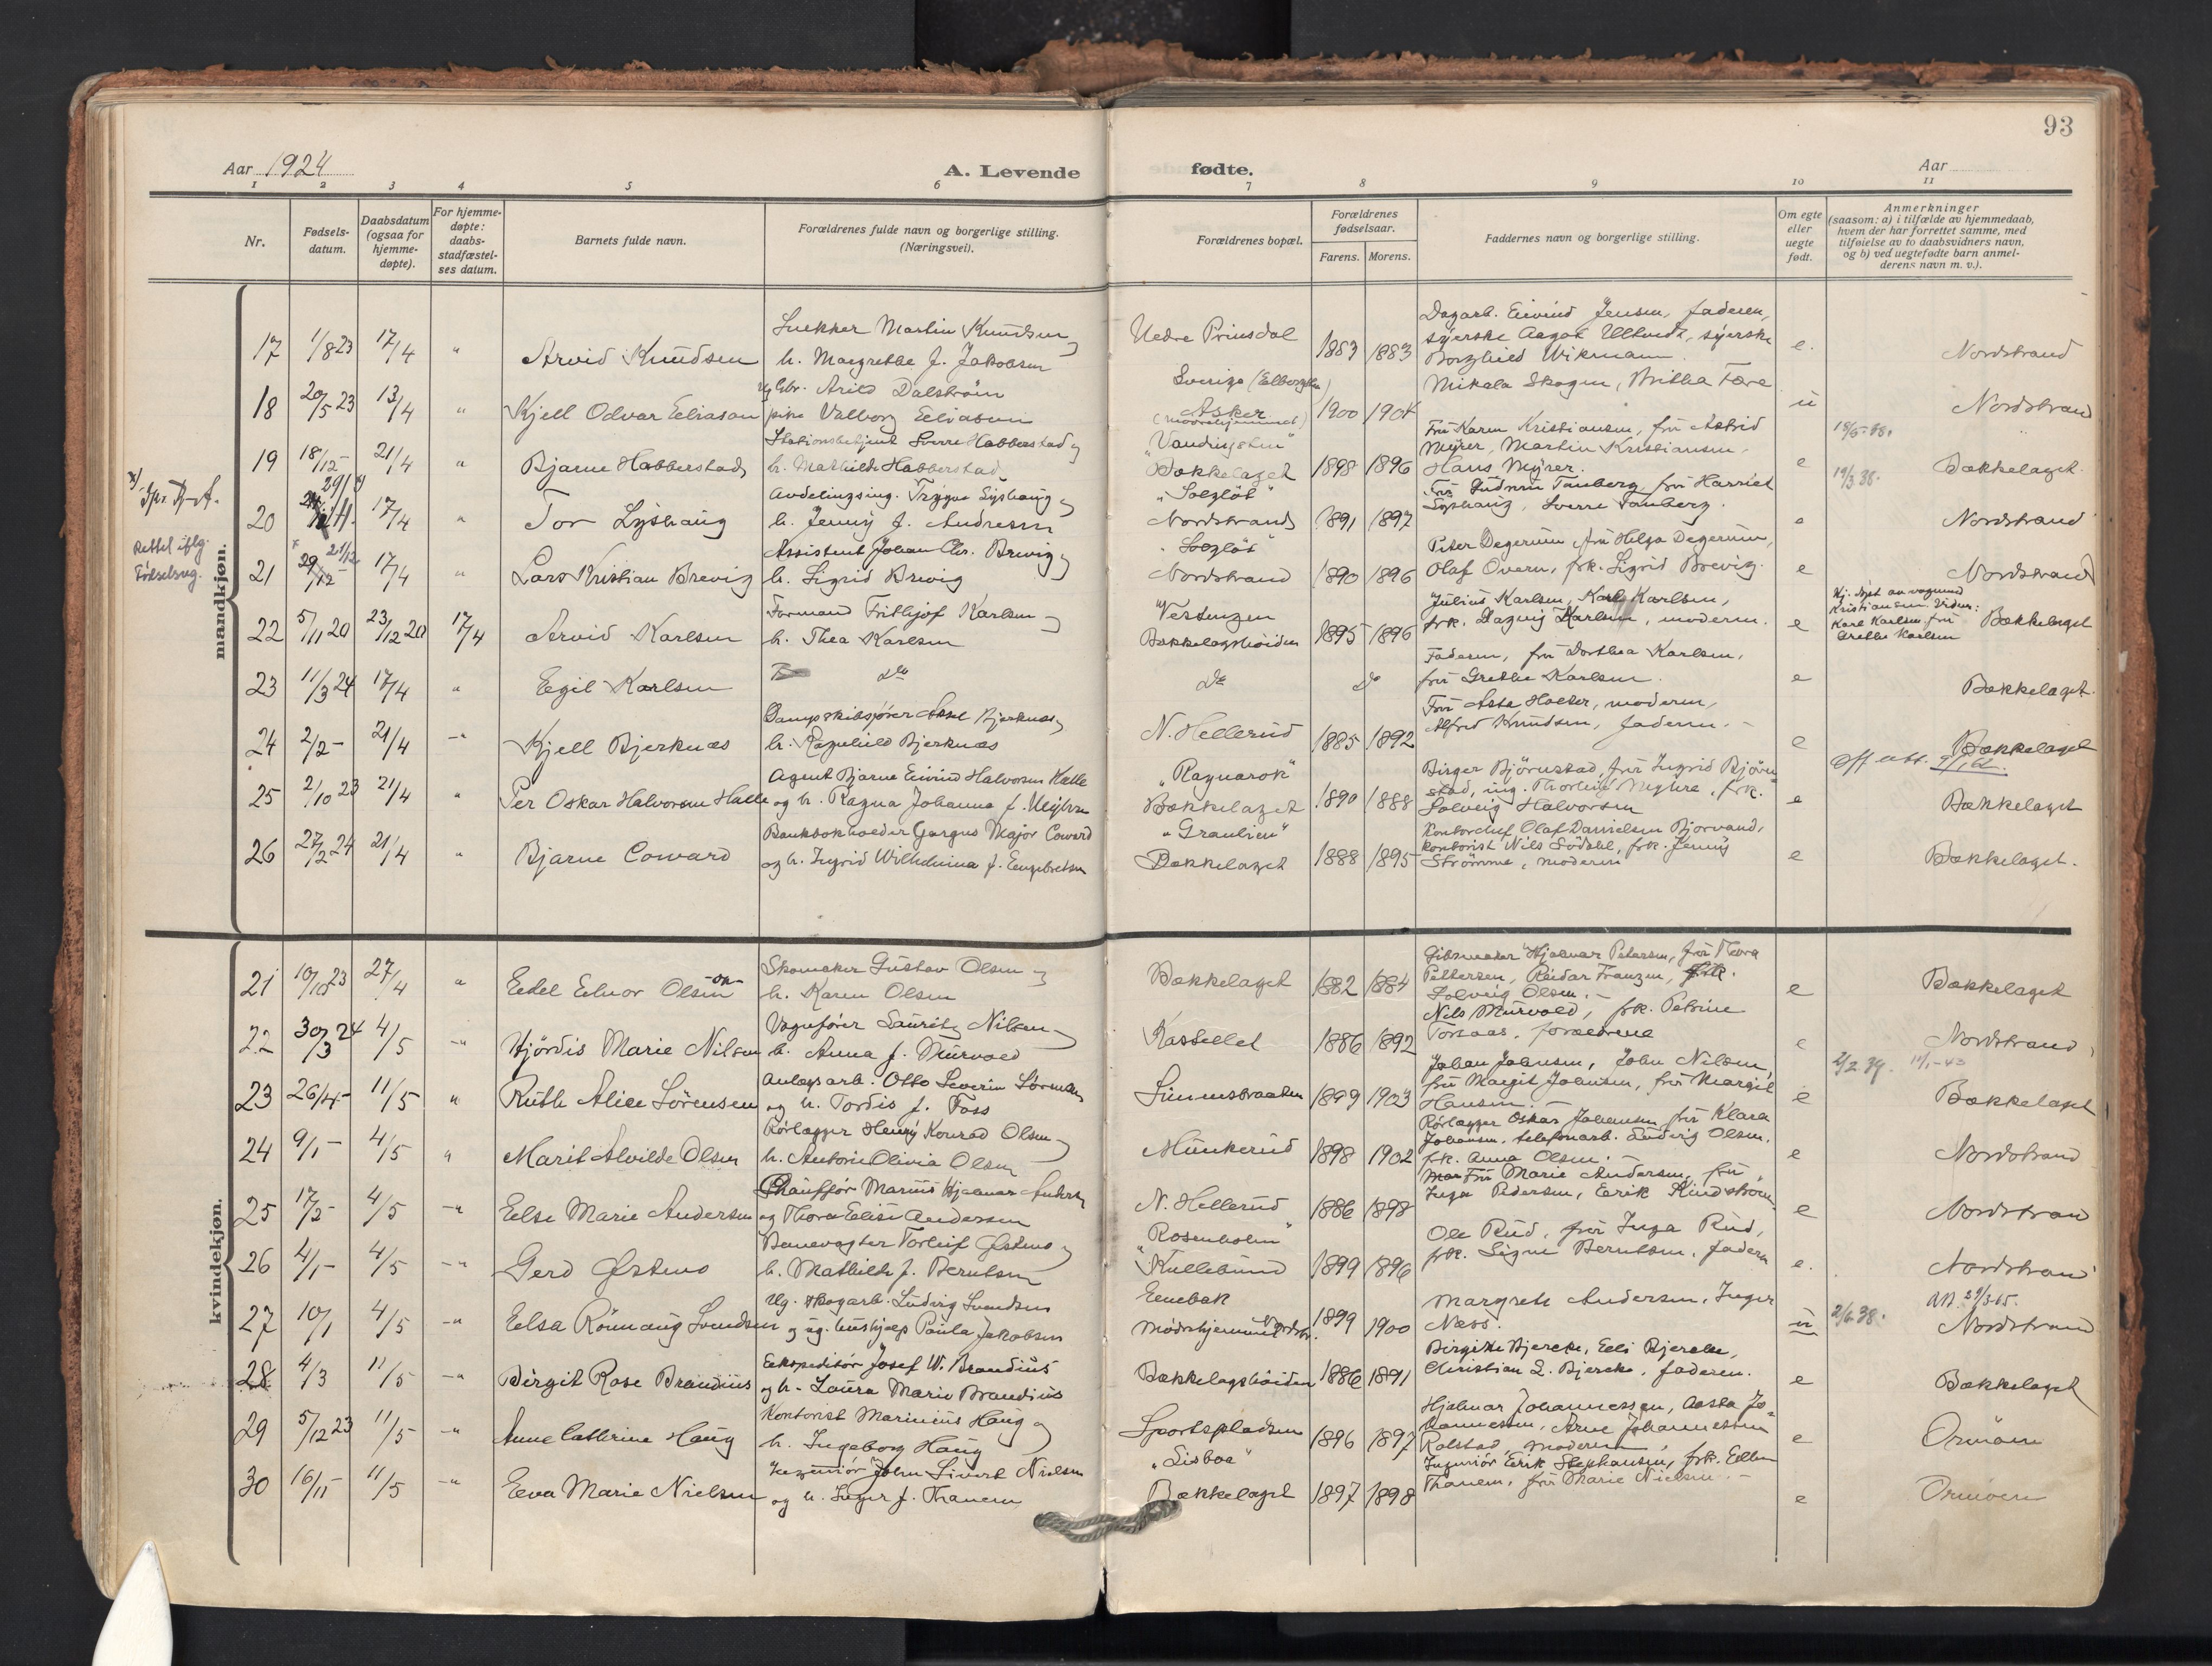 93
Aar 1924
A. Levende
fødte.
Aar
1 2 3 4 5 6 7 8 9 10 11
Nr.
Fødsels-
datum.
Daabsdatum
(ogsaa for
hjemme-
døpte).
For hjemme-
døpte:
daabs-
stadfæstel-
ses datum.
Barnets fulde navn.
Forældrenes fulde navn og borgerlige stilling.
(Næringsvei).
Forældrenes bopæl.
Forældrenes
fødselsaar.
Farens. Morens.
Faddernes navn og borgerlige stilling.
Om egte
eller
uegte
født.
Anmerkninger
(saasom: a) i tilfælde av hjemmedaab,
hvem der har forrettet samme, med
tilføielse av to daabsvidners navn,
og b) ved uegtefødte barn anmel-
derens navn m. v.).
mandkjøn.
17 1/8 23 17/4 " Arvid Knudsen
Snekker Martin Knudsen og
h. Margrethe f. Jakobsen
Nedre Prinsdal 1883 1883
Dagarb. Eivind Jensen, faderen,
syerske Aagot Ulltvedt, syerske
Borghild Wikmann
e. Nordstrand
18 20/5 23 13/4 " Kjell Odvar Eliasan
Ug gbr. Arild Dalström
pike Valborg Eliasen
Sverige
Asker
(mødrehjemmet) 1900 1904
Mikala Skogen, Britha Fære
u Nordstrand
19 18/12 - 21/4 " Bjarne Habberstad
Stationsbetjent Sverre Habberstad og
h. Mathilde Habberstad
Bækkelaget 1898 1896
Fru Karen Kristiansen, fru Astrid
Myrer, Martin Kristiansen,
Hans Myrer.
e 19/3 38. Bækkelaget.
20 29/1 17/4 " Tor Lyshaug
Avdelingsing. Trygve Lyshaug og
h. Jenny f. Andresen
"Solgløt"
Nordstrand 1891 1897
Fru Gudrun Tanberg, fru Harriet
Lyshaug, Sverre Tanberg.
e Nordstrand
Rettet iflg.
Fødselsreg.
21 29/12 - 21/12 17/4 " Lars Kristian Brevig
Assistent Johan Chr. Brevig og
h. Sigrid Brevig
"Solgløt"
Nordstrand 1890 1896
Peter Degerum, fru Helga Degerum,
Olaf Overn, frk. Sigrid Brevig.
e Nordstrand
22 5/11 20 23/12 20 17/4 Arvid Karlsen
Formand Frithjof Karlsen og
h. Thea Karlsen
Bækkelagshøiden 1895 1896
Julius Karlsen, Karl Karlsen,
frk. Dagny Karlsen, moderen.
e
Kristiansen. Vidner:
Karl Karlsen, fru
Grethe Karlsen
Bækkelaget
23 11/3 24 17/4 " Egil Karlsen
do do do
Faderen, fru Dorthea Karlsen,
fru Grethe Karlsen.
e Bækkelaget.
24 2/2 - 21/4 -" Kjell Bjerknæs
Dampskibsfører Aksel Bjerknæs og
h. Ragnhild Bjerknæs
N. Hellerud 1885 1892
Fru Asta Holter, moderen,
Alfred Knudsen, faderen. -
e Bækkelaget
25 2/10 23 21/4 " Per Oskar Halvorsen Hatle
Agent Bjarne Eivind Halvorsen Hatle
og h. Ragna Johanna f. Myhre
"Ragnarok"
Bækkelaget 1890 1888
Birger Bjørnstad, fru Ingrid Bjørn-
stad, ing. Thorleif Myhre, frk.
Solveig Halvorsen
e Bækkelaget
26 27/2 24 21/4 " Bjarne Coward
Bankbokholder Gargus Major Coward
og h. Ingrid Wilhelmina f. Engebretsen
"Granlien"
Bækkelaget 1888 1895
Kontorchef Olaf Danielsen Bjorvand,
kontorist Nils Södahl, frk. Jenny
Strömme, moderen
e Bækkelaget.
kvindekjøn.
21 10/10 23 27/4 " Edel Elnor Olsen
Skomaker Gustav Olsen og
h. Karen Olsen
Bækkelaget 1882 1884
Gibsmaker Hjalmar Petersen, fru Thora
Pettersen, Reidar Franzen, frk.
Solveig Olsen. -
e Bækkelaget
22 30/3 24 4/5 -" Hjördis Marie Nilsen
Vognfører Lauritz Nilsen og
h. Anna f. Murvold
Kastellet 1886 1892
Nils Murvold, frk. Petrine
Torsaas, forældrene
e Nordstrand
23 26/4 - 11/5 " Ruth Alice Sörensen
Anlægsarb. Otto Severin Sörensen
og h. Tordis f. Foss
1899 1903
Johan Johnsen, John Nilsen,
fru Margit Johnsen, fru Margit
Hansen. -
e 2/2 39. Bækkelaget
24 9/1 - 4/5 " Marit Alvilde Olsen
Rörlægger Henry Konrad Olsen og
h. Antonie Olivia Olsen
Munkerud 1898 1902
Rörlægger Oskar Johansen, fru Klara
Johansen, telefonarb. Ludvig Olsen,
frk. Anna Olsen. -
e Nordstrand
25 17/2 - 4/5 -" Else Marie Andersen
Chauffør Marius Hjalmar Andersen
og Thora Elise Andersen
N. Hellerud 1886 1898
Fru Marie Andersen, fru
Inga Pedersen, Erik Lindström
e Nordstrand
26 4/1 - 4/5 -" Gerd Østmo
Banevogter Torleif Østmo og
h. Mathilde f. Berntsen
"Rosenholm"
Kullebund 1899 1896
Ole Rud, fru Inga Rud,
frk. Signe Berntsen, faderen
e. Nordstrand
27 10/1 4/5 -" Elsa Rönnaug Svendsen
Ug. skogarb. Ludvig Svendsen
og ug. hushjelp Paula Jakobsen
Enebak
Mødrehjemmet Nordstr. 1899 1900
Margrete Andersen, Inger
Næss.
u 2/6 38. Nordstrand
28 4/3 11/5 -" Birgit Rose Brandius
Ekspeditør Josef W. Brandius
og h. Laura Marie Brandius
Bækkelagshøiden 1886 1891
Birgitte Bjercke, Elli Bjercke,
Christian L. Bjercke, faderen.
e Bækkelaget
29 5/12 23 11/5 -" Anne Cathrine Haug
Kontorist Marinius Haug og
h. Ingeborg Haug
Sportspladsen 1896 1897
Hjalmar Johannessen, Aasta Jo-
hannessen, Arne Johannessen
Rolstad, moderen,
e Ormöen
30 16/11 - 11/5 -" Eva Marie Nielsen
Ingeniør John Sivert Nielsen
og h. Inger f. Thanem
"Lisboa"
Bækkelaget 1897 1898
Ingeniør Erik Stephansen, frk. Ellen
Thanem, fru Marie Nielsen. -
e Ormöen